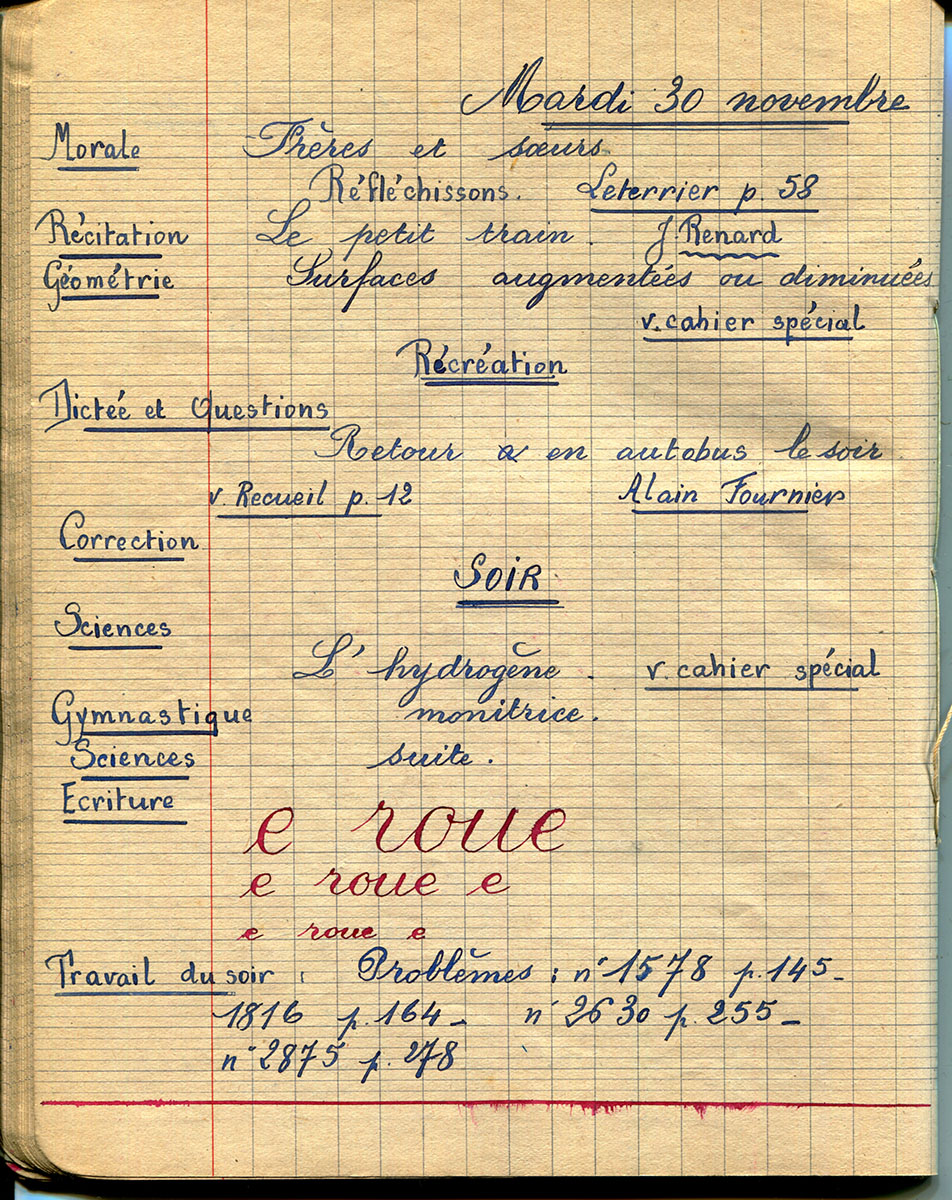 Mardi 30 novembre
Morale Frères et sœurs
Réfléchissons. Leterrier p. 58
Récitation Le petit train. J. Renard
Géométrie Surfaces augmentées ou diminuées
v. cahier spécial
Récréation
Dictée et Questions
Retour a en autobus le soir
v. Recueil p. 12 Alain Fournier
Correction
SOIR
Sciences
L'hydrogène. v. cahier spécial
Gymnastique monitrice.
Sciences suite.
Ecriture
e roue
e roue e
e roue e
Travail du soir : Problèmes : n° 1578 p. 145 -
1816 p. 164 - n° 2630 p. 255 -
n° 2875 p. 278